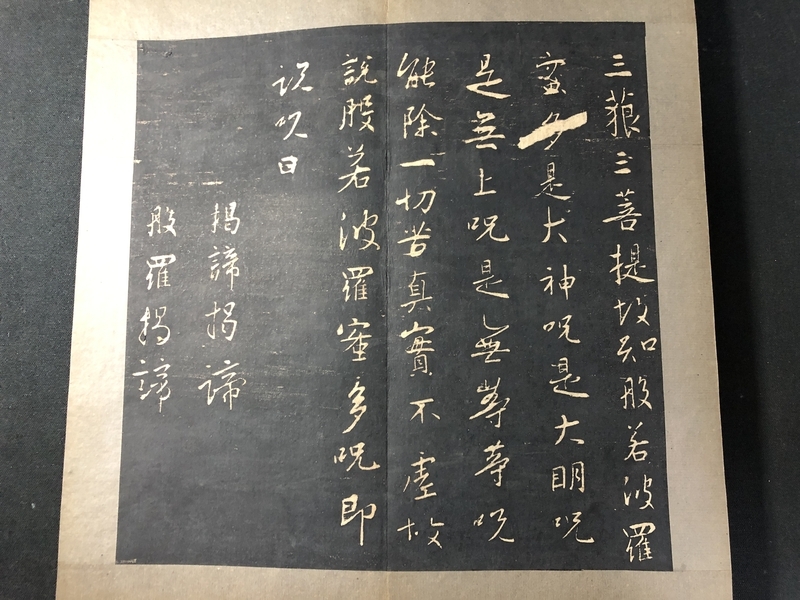 三藐三菩提故知般若波羅
蜜多是大神呪是大明呪
是無上呪是無等等呪
能除一切苦真實不虛故
說般若波羅蜜多呪即
說呪曰
揭諦揭諦
般羅揭諦